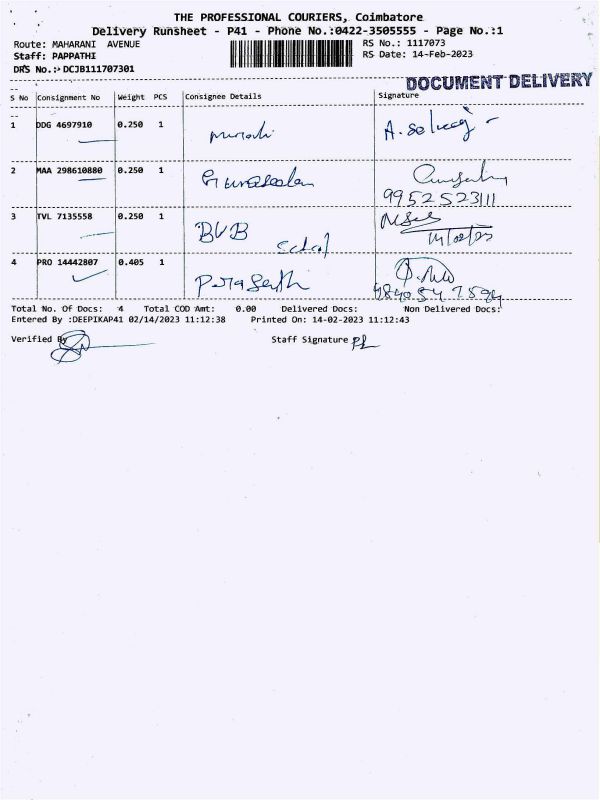 THE PROFESSIONAL COURIERS, Coimbatore
Delivery Runsheet - P41 - Phone No.:0422-3505555 - Page No.:1
Route: MAHARANI AVENUE RS No.: 1117073
Staff: PAPPATHI RS Date: 14-Feb-2023
DRS No.: DCJB111707301
DOCUMENT DELIVERY
S No Consignment No Weight PCS Consignee Details Signature
1 DDG 4697910 0.250 1
2 MAA 298610880 0.250 1
9952523111
3 TVL 7135558 0.250 1 BVB
4 PRO 14442807 0.405 1
Total No. Of Docs: 4 Total COD Amt: 0.00 Delivered Docs: Non Delivered Docs:
Entered By :DEEPIKAP41 02/14/2023 11:12:38 Printed On: 14-02-2023 11:12:43
Verified By Staff Signature